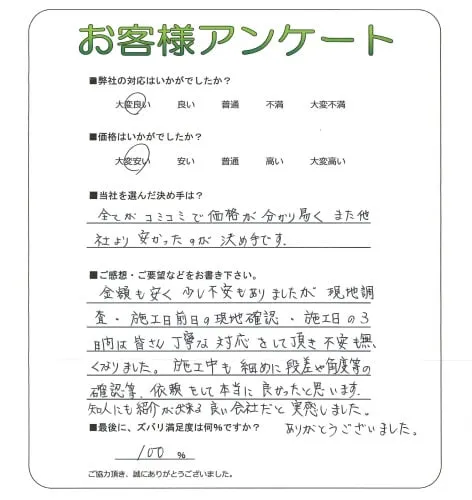 お客様アンケート
■弊社の対応はいかがでしたか？
大変良い 良い 普通 不満 大変不満
■価格はいかがでしたか？
大変安い 安い 普通 高い 大変高い
■当社を選んだ決め手は？
全てがコミコミで価格が分かり易く また他
社より安かったのが決め手です.
■ご感想・ご要望などをお書き下さい。
金額も安く 少し不安もありましたが 現地調
査・施工日前日の現地確認・施工日の3
日間は皆さん丁寧な対応をして頂き不安も無
くなりました。施工中も細めに段差や角度等の
確認等、依頼をして本当に良かったと思います.
知人にも紹介が出来る良い会社だと実感しました。
ありがとうございました。
■最後に、ズバリ満足度は何%ですか？
100 %
ご協力頂き、誠にありがとうございました。